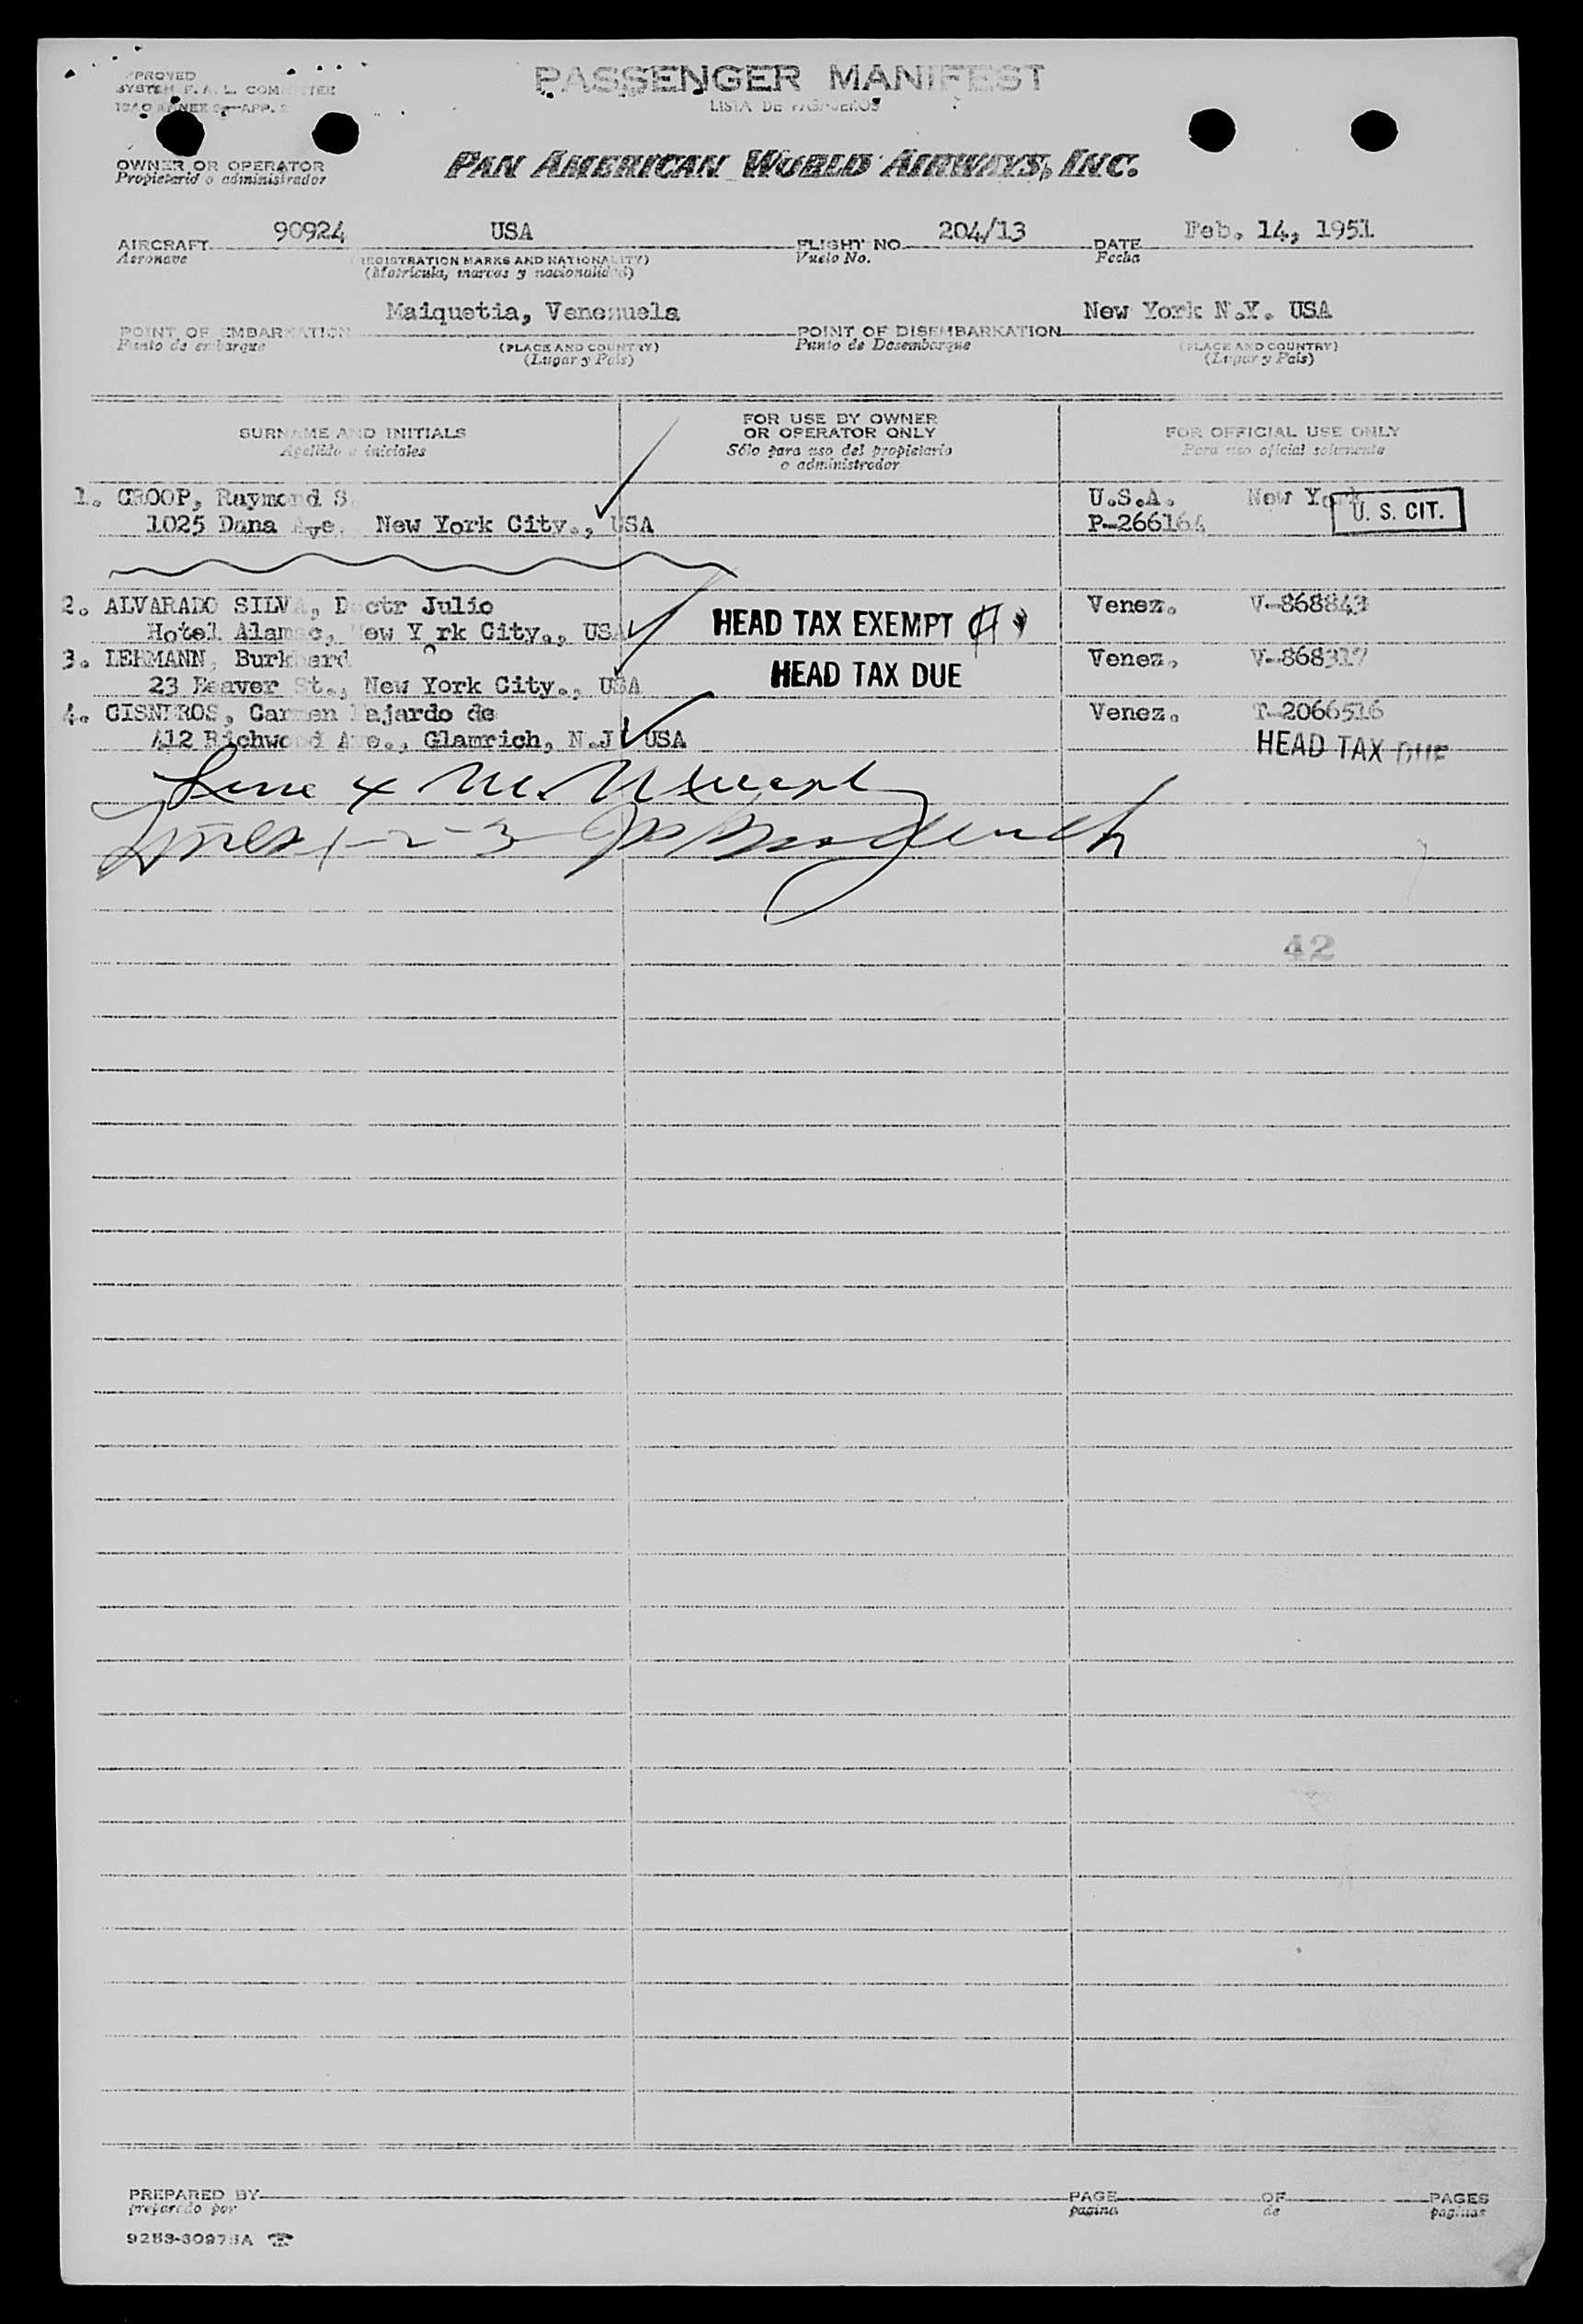 PASSENGER MANIFEST
LISTA DE PASAJEROS
APPROVED
SYSTEM F. A. L. COMMITTEE
ICAO ANNEX 9—APP. 2
OWNER OR OPERATOR
Propietario o administrador
PAN AMERICAN WORLD AIRWAYS, INC.
AIRCRAFT 90924 USA FLIGHT NO. 204/13 DATE Feb. 14, 1951
Aeronave (REGISTRATION MARKS AND NATIONALITY) Vuelo No. Fecha
(Matrícula, marcas y nacionalidad)
POINT OF EMBARKATION Maiquetia, Venezuela POINT OF DISEMBARKATION New York N.Y. USA
Punto de embarque (PLACE AND COUNTRY) Punto de Desembarque (PLACE AND COUNTRY)
(Lugar y País) (Lugar y País)
SURNAME AND INITIALS
Apellido e iniciales
FOR USE BY OWNER
OR OPERATOR ONLY
Sólo para uso del propietario
o administrador
FOR OFFICIAL USE ONLY
Para uso oficial solamente
1. CROOP, Raymond S. U.S.A. New York
1025 Dana Ave. New York City., USA P-266164 U. S. CIT.
2. ALVARADO SILVA, Doctr Julio HEAD TAX EXEMPT Venez. V-868843
Hotel Alamac, New Y rk City., USA
3. LEHMANN, Burkhard HEAD TAX DUE Venez. V-868317
23 Beaver St., New York City., USA
4. CISNEROS, Carmen Fajardo de Venez. T-2066516
412 Richwood Ave., Glamrich, N.J USA HEAD TAX DUE
Line 4 M.
Lines 1-2-3
42
PREPARED BY PAGE OF PAGES
preparado por pagina de paginas
9253-30975A